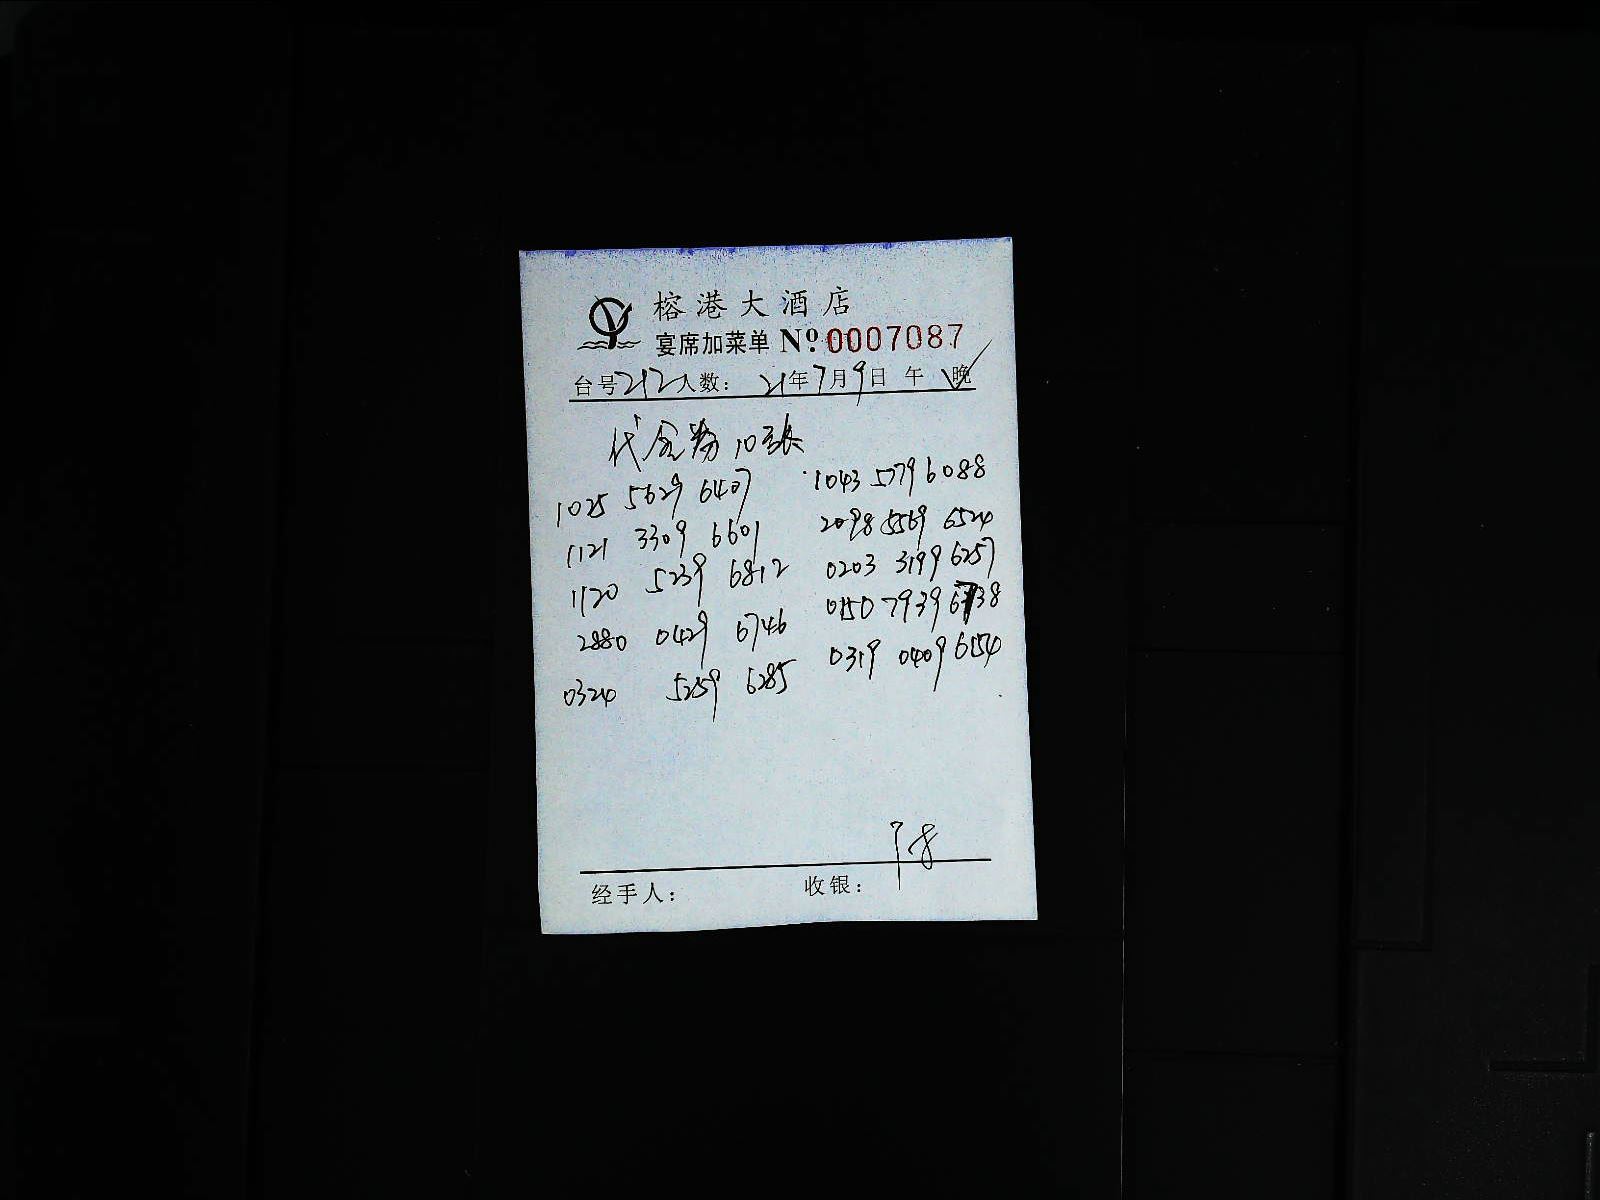 榕港大酒店
宴席加菜单 Nº 0007087
台号 212 人数： 21年7月9日 午 晚
代金券10张
1025 5629 6407
1043 5779 6088
1121 3309 6601
2098 5569 6524
1120 5239 6812
0203 3199 6257
2880 0429 6746
0150 7939 6738
0324 5259 6285
0319 0409 6154
经手人： 收银：